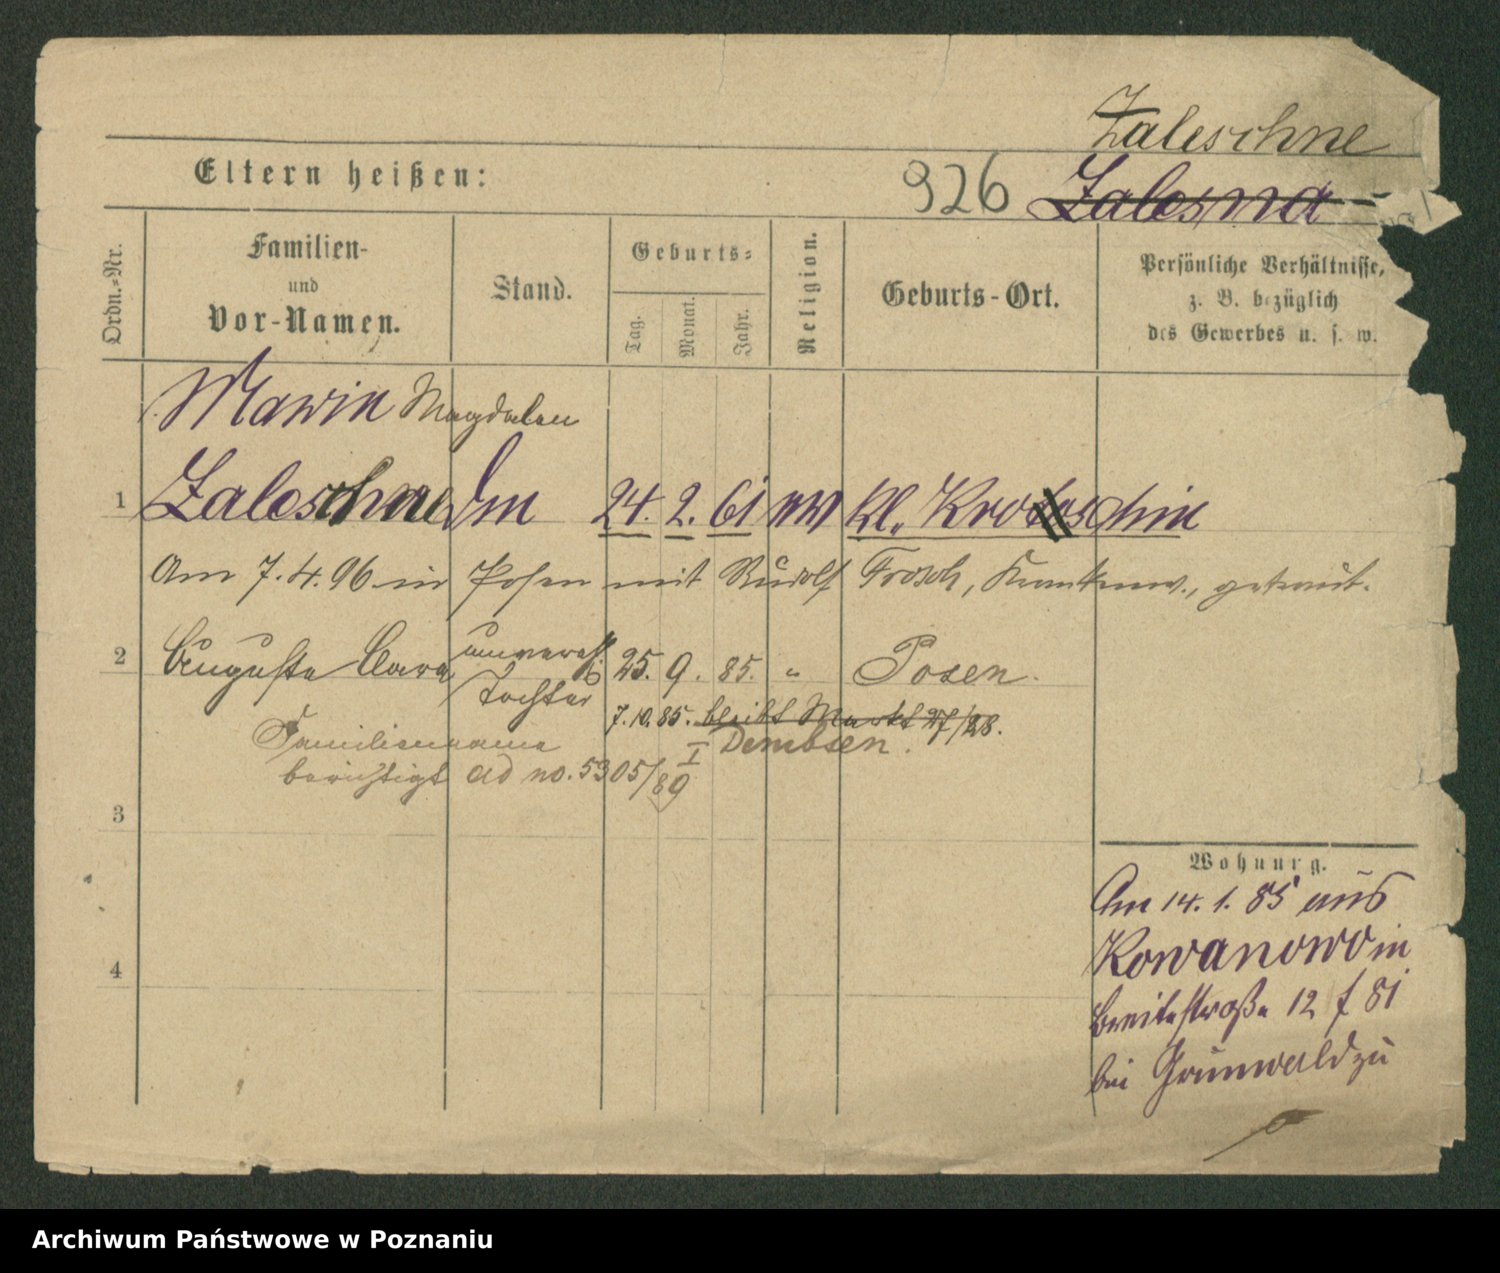 Zaleschne
Eltern heißen:
926 Zalesna
Ordn.-Nr.
Familien-
und
Vor-Namen.
Stand.
Geburts-
Tag.
Monat.
Jahr.
Religion.
Geburts-Ort.
Persönliche Verhältnisse,
z. B. bezüglich
des Gewerbes u. s. w.
Marie Magdalena
1 Zaleschne 24. 2. 61 Kl. Kroschin
Am 7. 4. 96 in Posen mit Rudolf Frosch, getraut.
2 Auguste Clara unverehl. Tochter 25. 9. 85. " Posen.
7.10.85. bleibt Markt 27/28.
Dembsen.
Familienname
berichtigt ad no. 5305/89 I
3
4
Wohnung.
Am 14. 1. 85 aus
Kowanowo in
Breitestraße 12 f 81
bei Grunwald zu
Archiwum Państwowe w Poznaniu